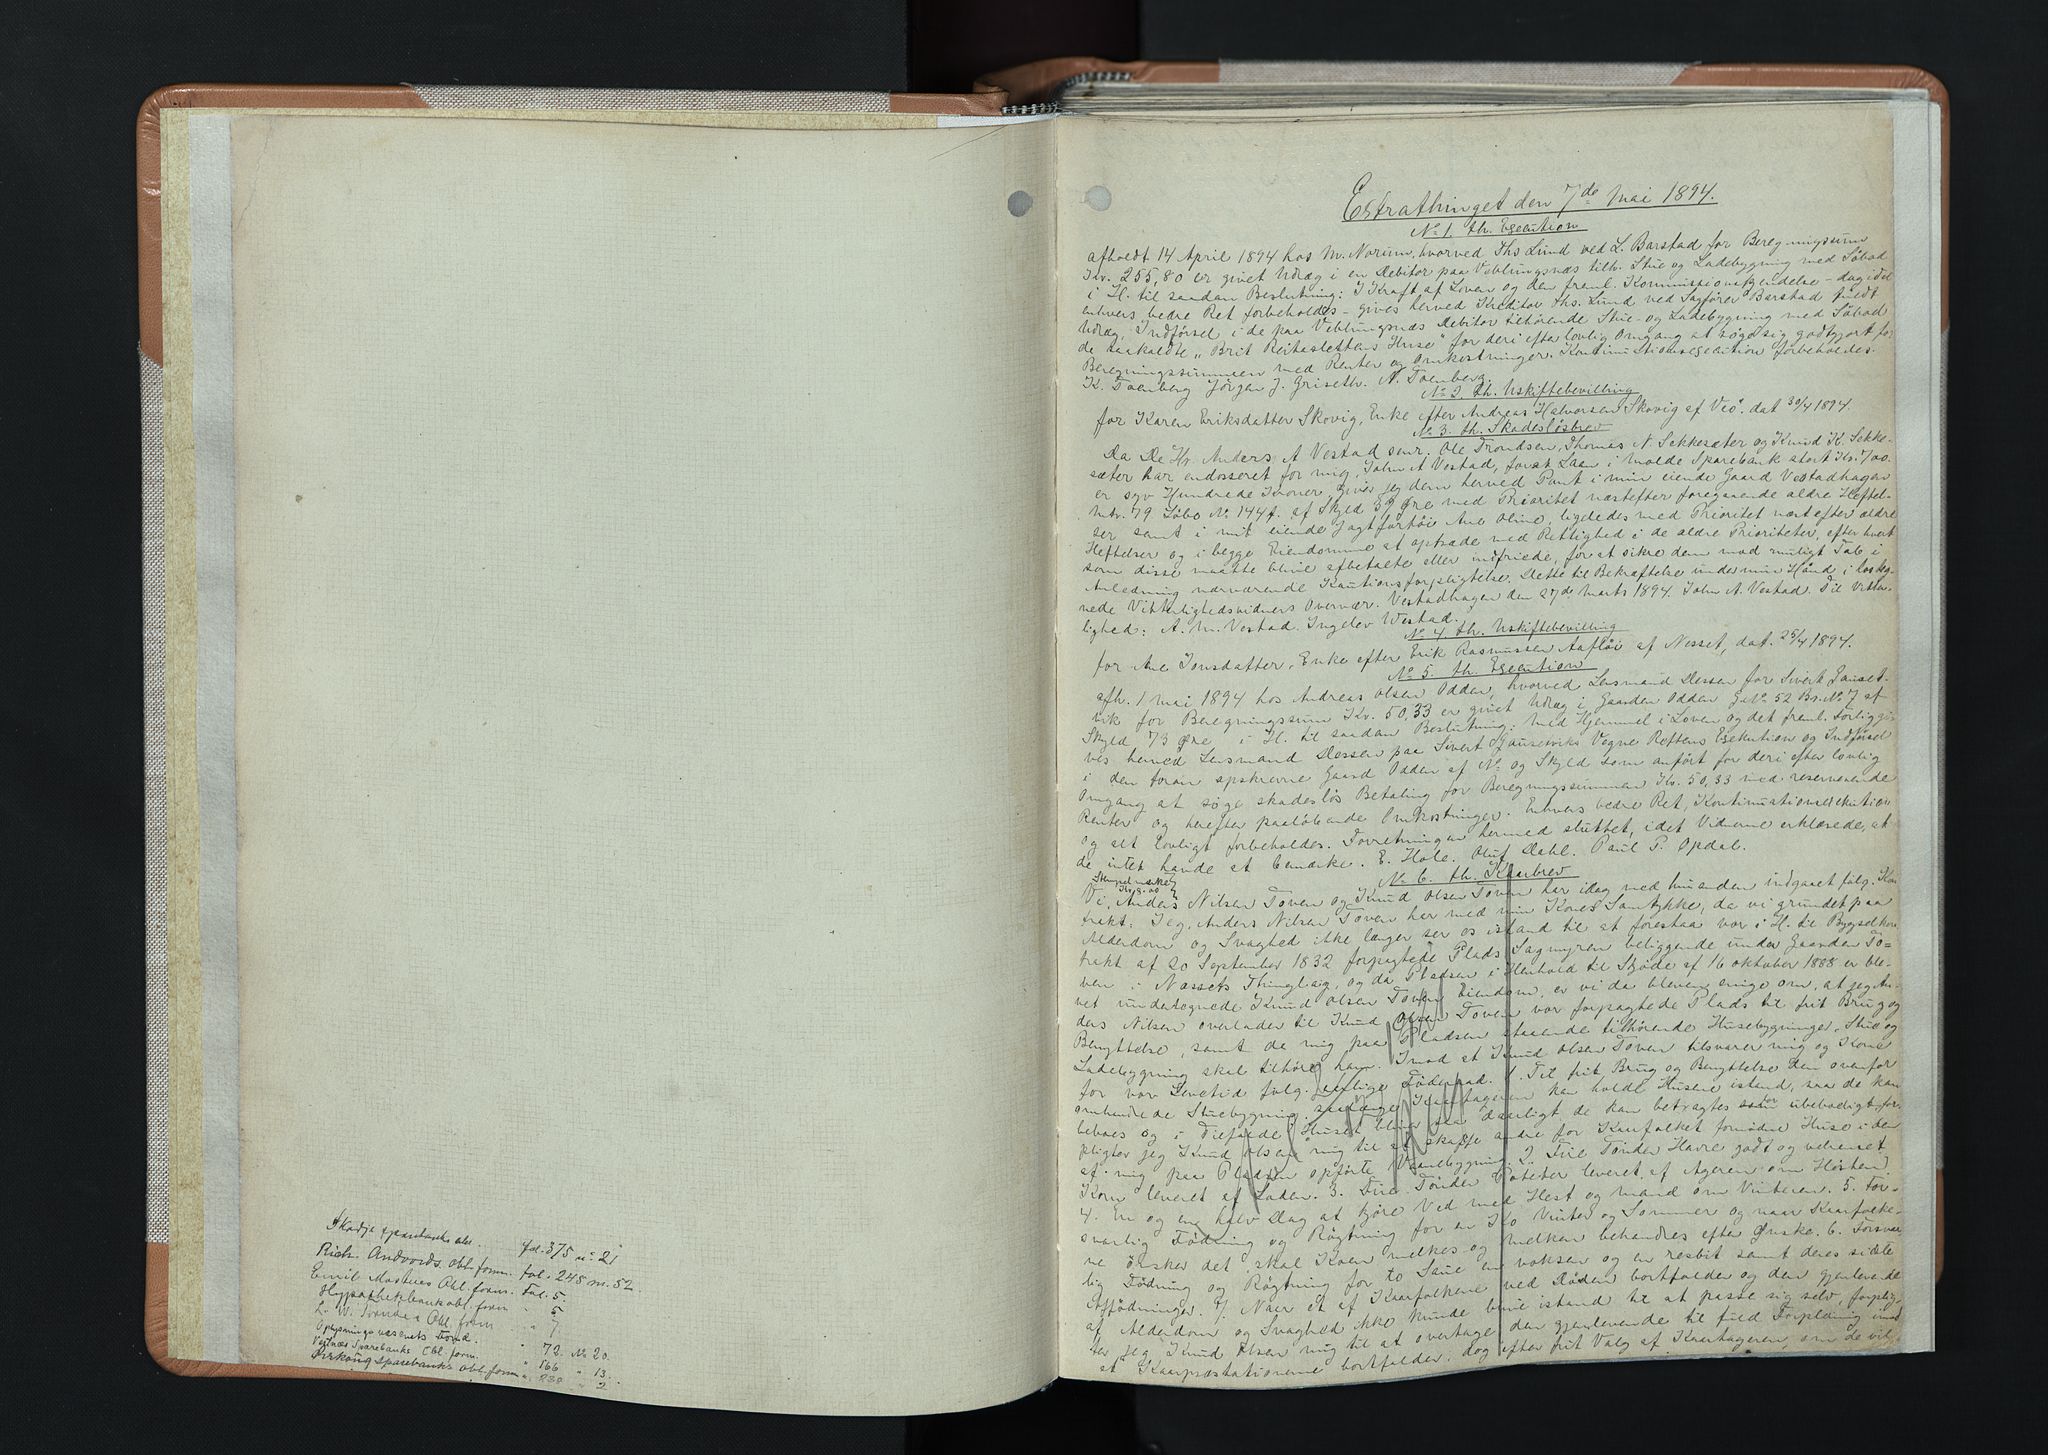 Skodje sparebanks obl. fol. 375 nr 21
Rich. Andvords obl. form. fol. 248 n. 52.
Emil Mostues Obl. form. Fol. 5.
Hypothekbankobl. form " 5
L. W. Obl. form " 7
Oplysningsvæsenets Fond. " 72. No 20.
Vestnæs Sparebanks Obl. form. " 166 " 13.
Ørskoug Sparebanks obl. form " 230 " 2
Extrathinget den 7de Mai 1894.
No 1. th. Execution
afholdt 14 April 1894 hos M. Norum, hvorved Ths Lund ved L. Barstad for Beregningssum
Kr. 255,80 er givet Udlæg i en Debitor paa Veblungsnæs tilh. Stue og Ladebygning med Søbod
i H. til saadan Beslutning: I Kraft af Loven og den freml. Kommissionskjendelse – dog idet
enhvers bedre Ret forbeholdes – gives herved Kreditor Ths. Lund ved Sagfører Barstad fuldt
Udlæg, Indførsel i de paa Veblungsnæs Debitor tilhørende Stue- og Ladebygning med Søbod
de saakaldte "Brit Reitaslettens Huse" for deri efter lovlig Omgang at søge sig godtgjort for
Beregningssummen med Renter og Omkostninger. Kontinuationsexecution forbeholdes.
K. Toenberg Jørgen J. Griseth. N. Toenberg.
No 2. th. Uskiftebevilling
for Karen Eriksdatter Skovig, Enke efter Andreas Halvorsen Skovig af Veø. dat 30/4 1894.
No 3. th. Skadesløsbrev
Da De Hr. Anders A Vestad senr. Ole Trondsen, Thomas N. Sekkesæter og Knud K. Sekke-
sæter har endosseret for mig, John A Vestad, forat Laan i Molde Sparebank stort Kr. 700.
er syv Hundrede Kroner, giver jeg dem herved Pant i min eiende Gaard Vestadhagen
Mtr. 79 Løbe No 144f. af Skyld 39 Øre med Prioritet næstefter foregaaende ældre Heftel-
ser samt i mit eiende Jagtfartøi Ane Oline, ligeledes med Prioritet næst efter ældre
Heftelser og i begge Eiendomme at optræde med Rettighed i de ældre Prioriteter, efter hvert
som disse maatte blive afbetalte eller indfriede, for at sikre dem mod muligt Tab i
Anledning nærværende Kautionsforpligtelse. Dette til Bekræftelse under min Haand i hosteg-
nede Vitterlighedsvidners Overvær. Vestadhagen den 27de Marts 1894. John A. Vestad. Til Vitter-
lighed: A. M. Vestad. Ingelev Westad.
No 4. th. Uskiftebevilling
for Ane Jonsdatter, Enke efter Erik Rasmussen Aafløi af Nesset, dat. 25/4 1894.
No 5. th. Execution
afh. 1 Mai 1894 hos Andreas Olsen Odden, hvorved Lensmand Dessen for Sivert
vik for Beregningssum Kr. 50,33 er givet Udlæg i Gaarden Odden G. No 52 Br. No 7 af
Skyld 73 Øre i H. til saadan Beslutning: Med Hjemmel i Loven og det freml. Forlig gi-
ves herved Lensmand Dessen paa Sivert Vegne Rettens Exekution og Indførsel
i den foran opskrevne Gaard Odden af No og Skyld som anført for deri efter lovlig
Omgang at søge skadesløs Betaling for Beregningssummen Kr. 50,33 med reserverende
Renter og herefter paaløbende Omkostninger. Enhvers bedre Ret, Kontinuationsexekution
og alt lovligt forbeholdes. Forretningen hermed sluttet, idet Vidnerne erklærede, at
de intet havde at bemærke. E. Hole. Oluf Dahl. Paul P. Opdal.
No 6. th. Kaarbrev
Stempel mærke
Kr. 2.00
Vi, Anders Nilsen Toven og Knud Olsen Toven har idag med hinanden indgaaet følg. Kon
trakt: Jeg, Anders Nilsen Toven har med min Kones Samtykke, da vi grundet paa
Alderdom og Svaghed ikke længer ser os istand til at forestaa vor i H. til Bygselkon
trakt af 20 September 1832 forpagtede Plads Sagmyren beliggende under Gaarden To-
ven i Næssets Thinglag, og da Pladsen i Henhold til Skjøde af 16 oktober 1888 er ble-
vet undertegnede Knud Olsen Toven Eiendom, er vi da bleven enige om, at jeg An-
ders Nilsen overlader til Knud Olsen Toven vor forpagtede Plads til frit Brug og
Benyttelse, samt de mig paa Pladsen staaende tilhørende Husebygninger, Stue og
Ladebygning skal tilhøre ham. Imod at Knud Olsen Toven tilsvarer mig og Kone
for vor Levetid følg. aarlige Føderaad. 1. Til frit Brug og Benyttelse den ovenfor
omhandlede Stuebygning saalænge Kaartageren kan holde Husene istand, saa de kan
beboes og i Tilfælde Husene bliver saa daarligt de kan betragtes som ubeboeligt for-
pligter jeg Knud Olsen mig til at skaffe andre for Kaarfolket fornødne Huse i den
af mig paa Pladsen opførte Vaanebygning. 2. Fire Tønder Havre godt og velrenset
Korn leveret af Laden. 3. Fire Tønder Poteter leveret af Ageren om Høsten.
4. En og en halv Dag at kjøre Ved med Hest og Mand om Vinteren. 5. For-
svarlig Fødning og Røgtning for en Ko Vinter og Sommer og naar Kaarfolke-
ne ønsker det skal Koen melkes og Melken behandles efter Ønske. 6. Forsvar
lig Fødning og Røgtning for to Saue en voksen og en samt deres sidste
Affødninger. 7. Naar et af Kaarfolkene ved Døden bortfalder og den gjenlevende
af Alderdom og Svaghed ikke kunde blive istand til at passe sig selv, forplig-
ter jeg Knud Olsen mig til at overtage den gjenlevende til fuld Forpleining imod
at Kaarpræstationerne bortfalder, dog efter frit Valg af Kaartageren, om de vil